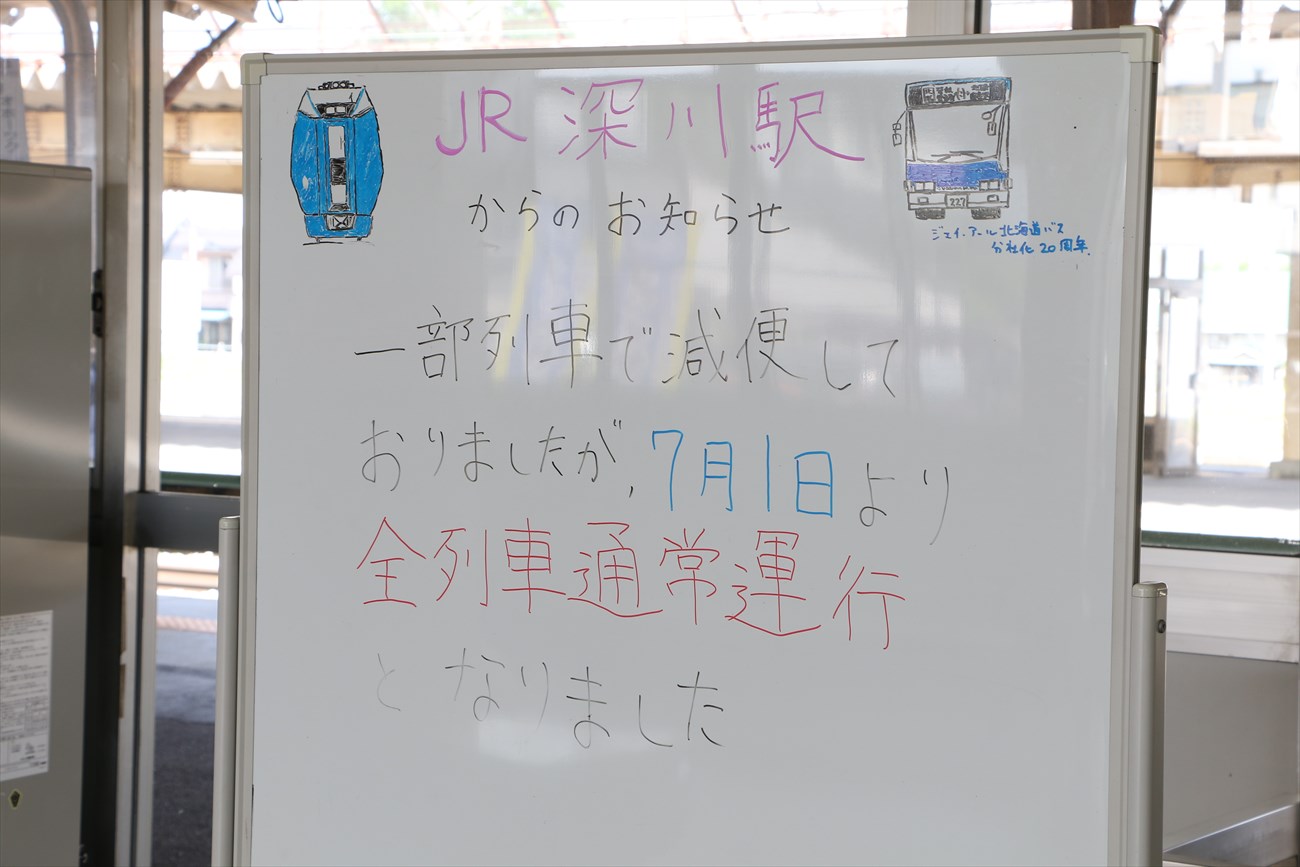 JR 深川駅
からのお知らせ
227
ジェイ・アール北海道バス
分社化20周年
一部列車で減便して
おりましたが、7月1日より
全列車通常運行
となりました